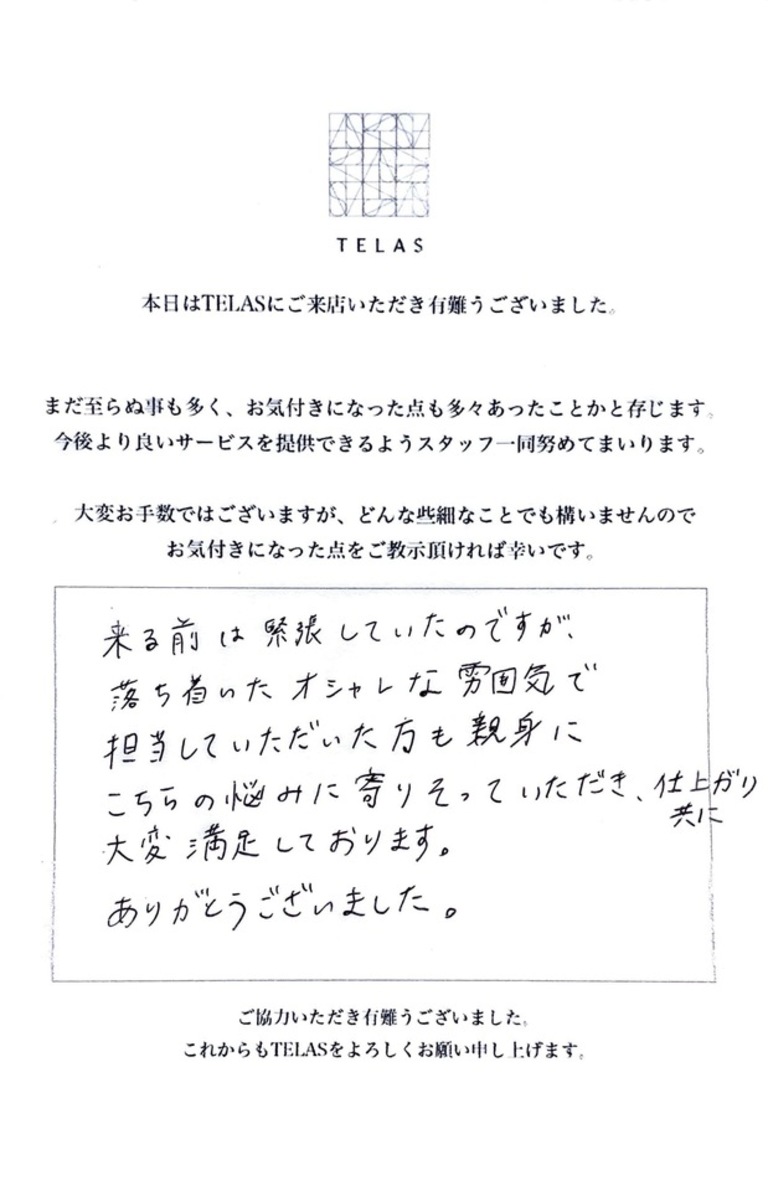 TELAS
本日はTELASにご来店いただき有難うございました。
まだ至らぬ事も多く、お気付きになった点も多々あったことかと存じます。
今後より良いサービスを提供できるようスタッフ一同努めてまいります。
大変お手数ではございますが、どんな些細なことでも構いませんので
お気付きになった点をご教示頂ければ幸いです。
来る前は緊張していたのですが、
落ち着いたオシャレな雰囲気で
担当していただいた方も親身に
こちらの悩みに寄りそっていただき、仕上がり
共に
大変満足しております。
ありがとうございました。
ご協力いただき有難うございました。
これからもTELASをよろしくお願い申し上げます。